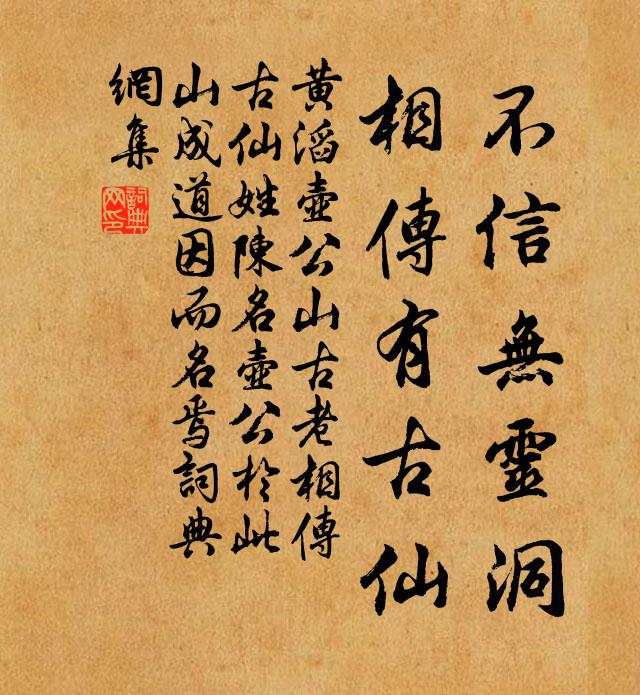 不信無靈洞
相傳有古仙
黃滔壺公山古老相傳
古仙姓陳名壺公於此
山成道因而名焉詞典
網集
詞典
网印